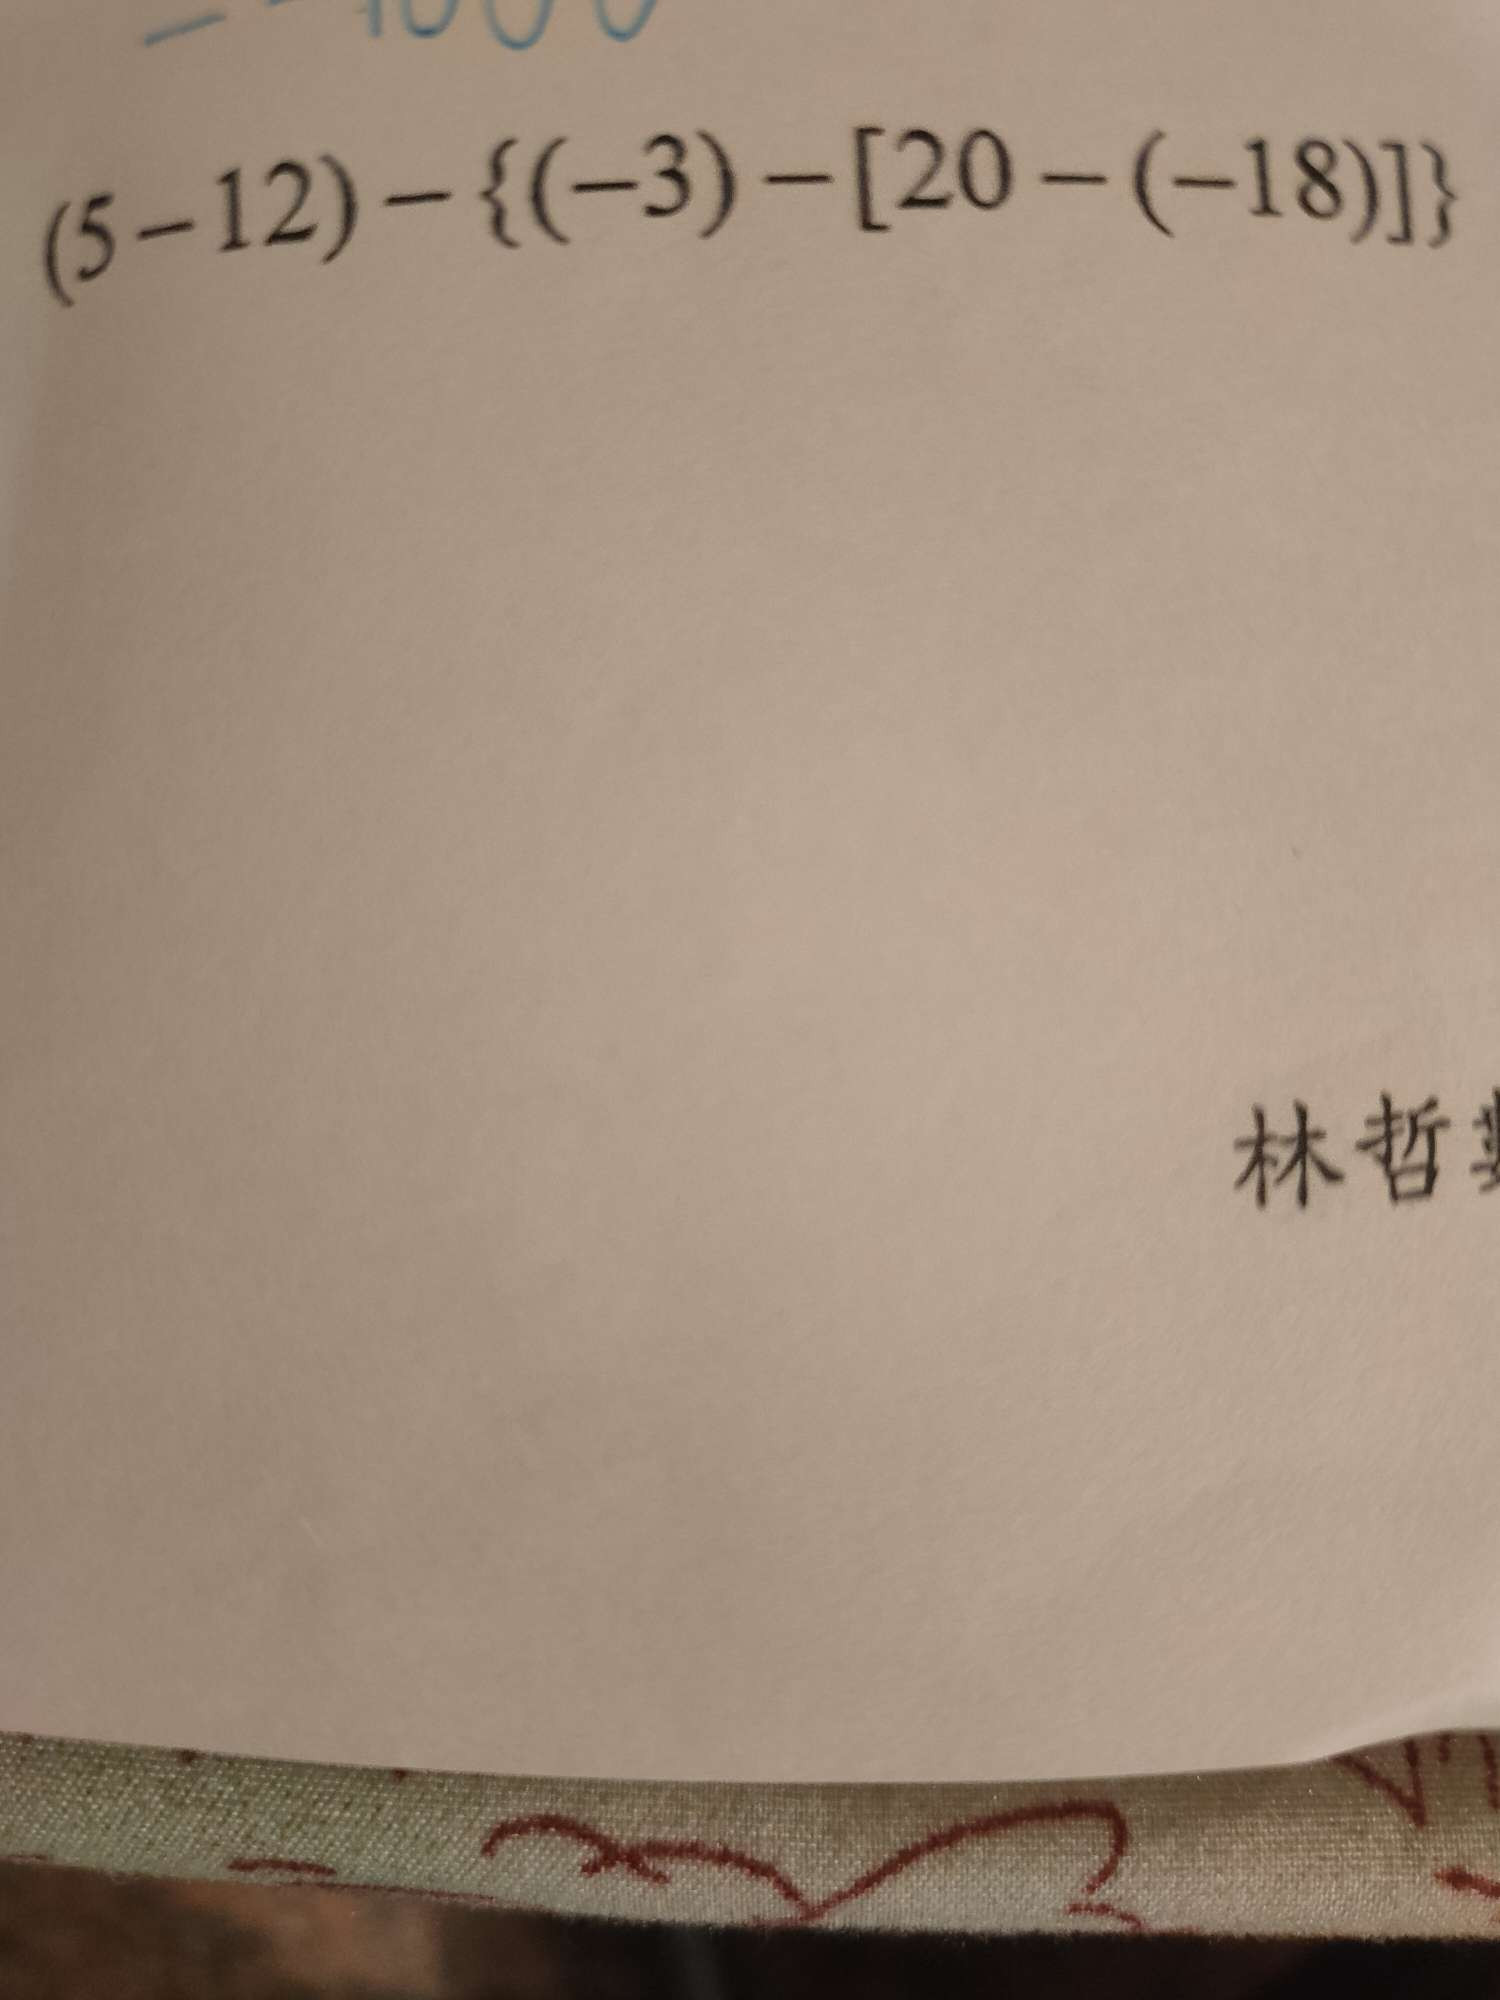 (5−12)−{(−3)−[20−(−18)]}
林哲